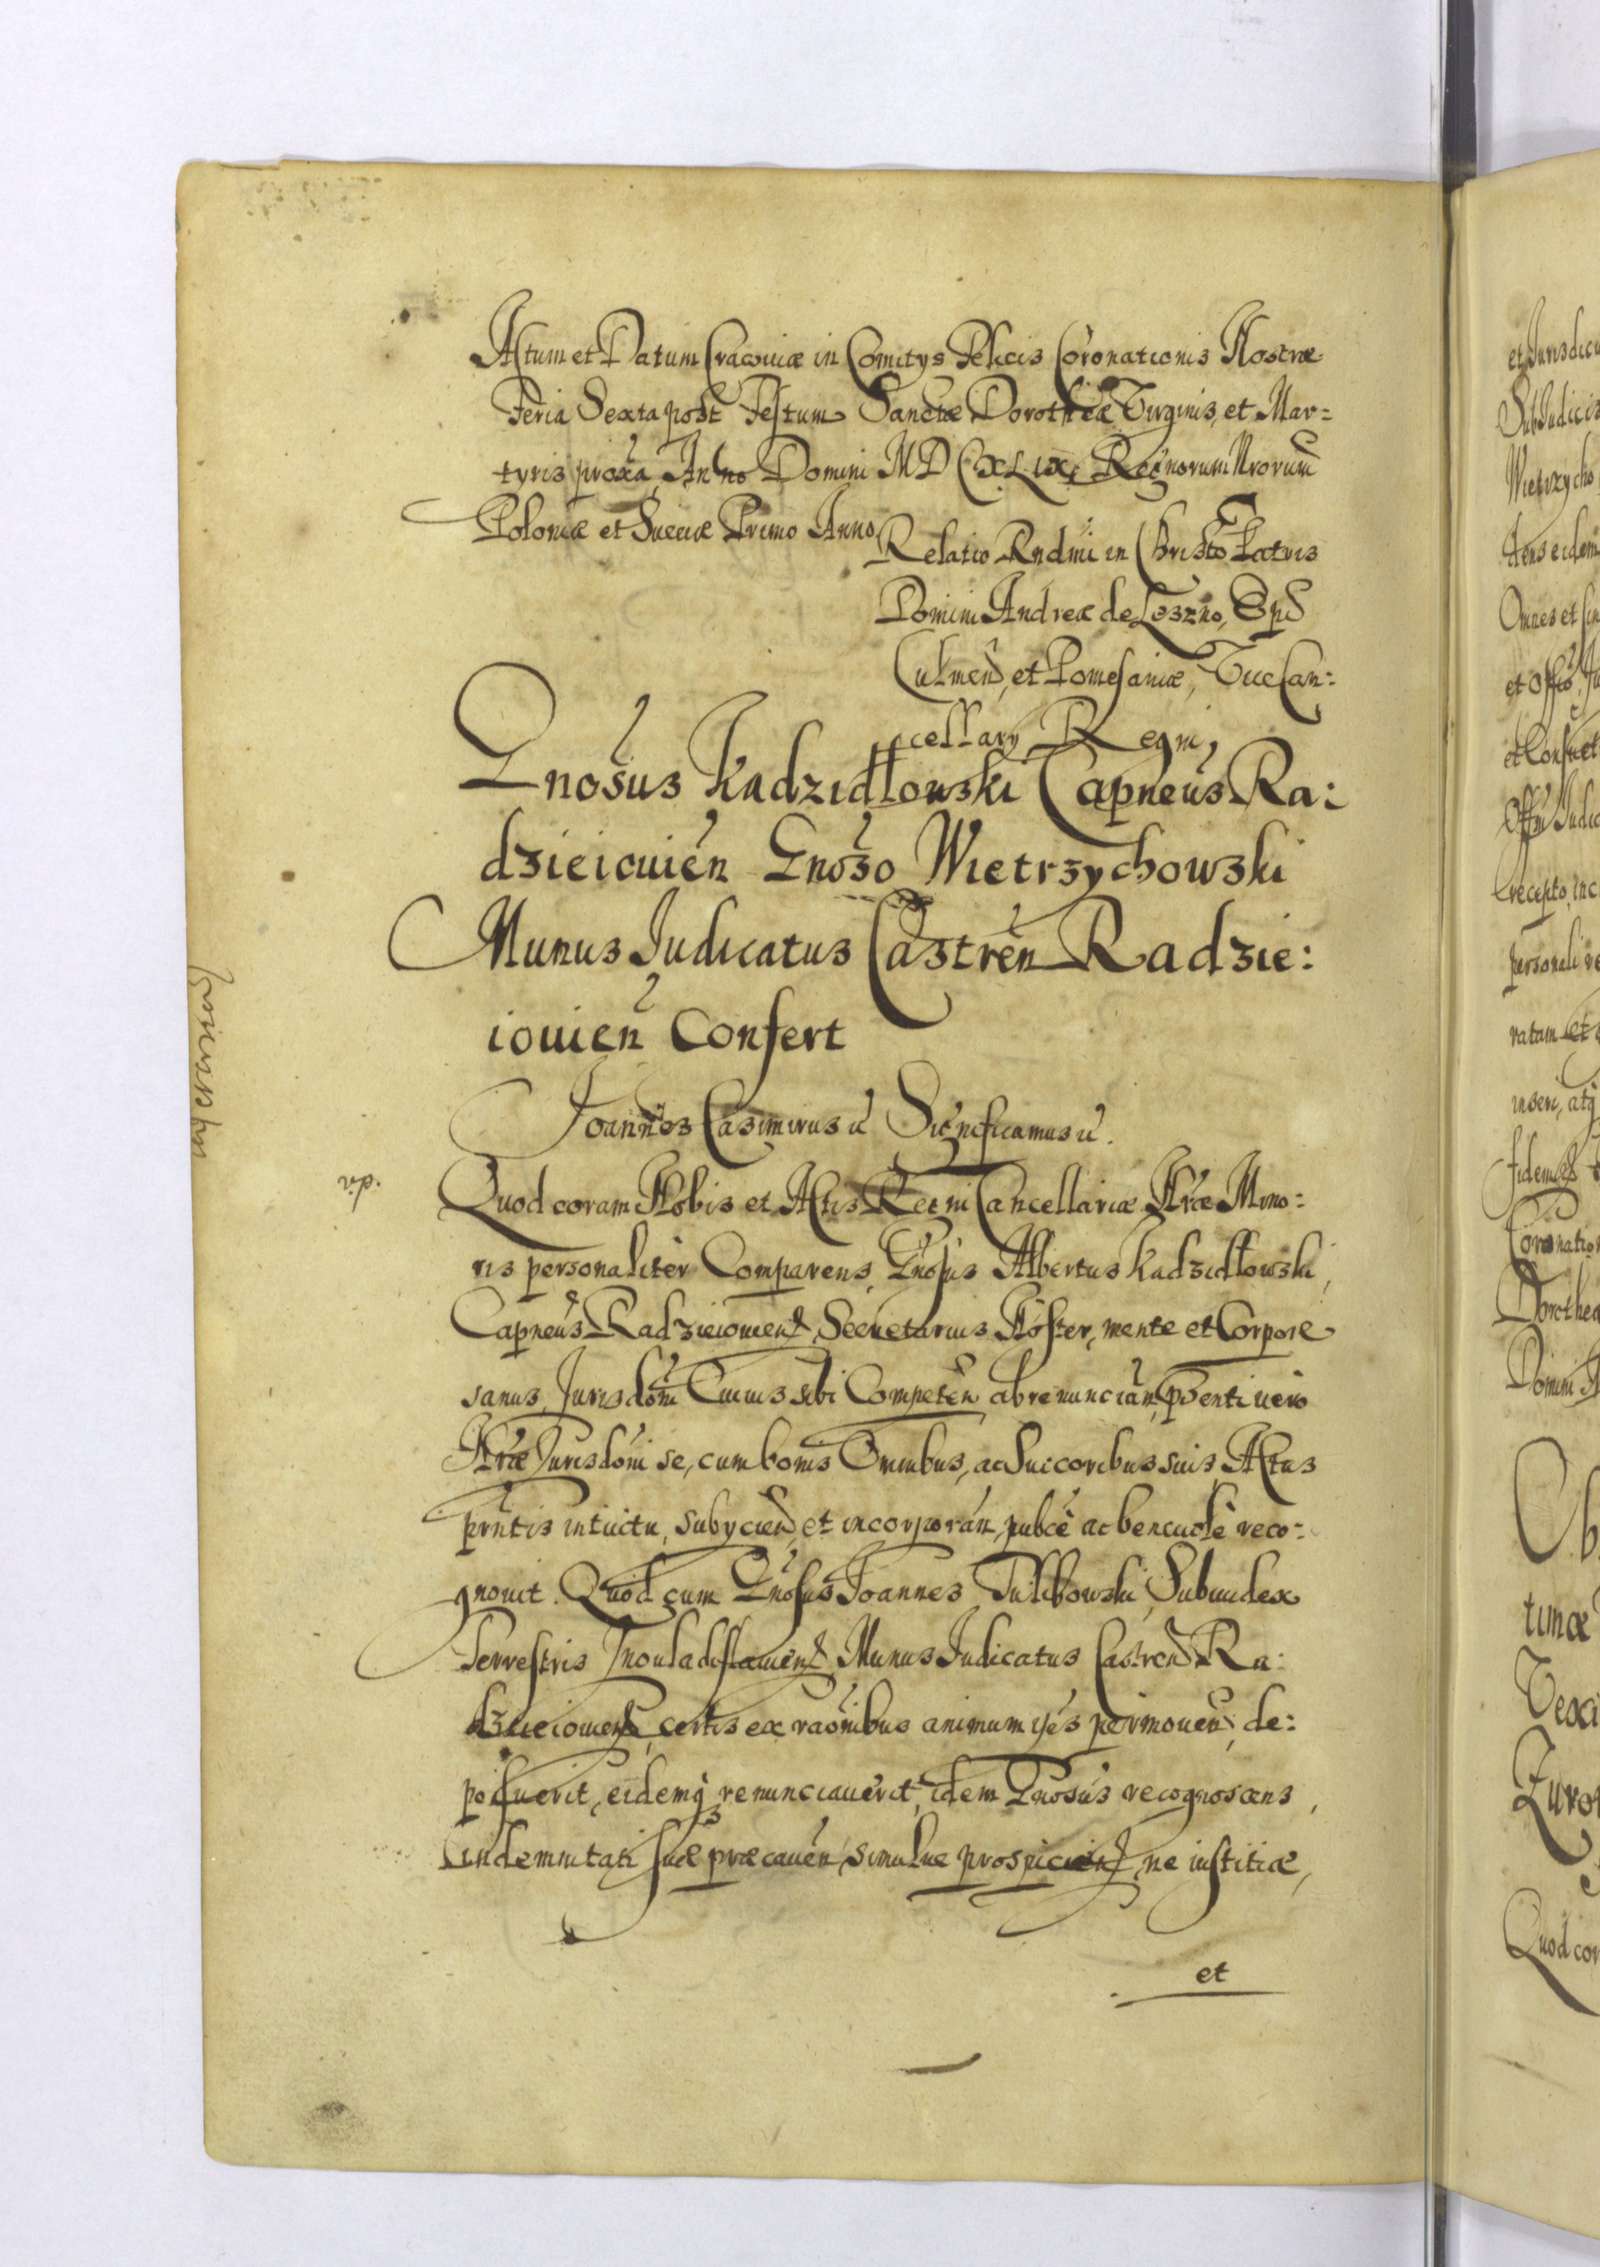 Actum et Datum Cracoviæ in Comitys Felicis Coronationis Nostræ
Feria Sexta post Festum Sanctæ Dorotheæ Virginis, et Mar=
tyris proxa, Anno Domini MDCXLIX, Regnorum Nrorum
Poloniæ et Sueciæ Primo Anno
Relatio Rndmi in Christo Patris
Domini Andreæ de Leszno, Epi
Culmen, et Pomesaniæ, Vice Can:
cellary Regni,
Gnosus Kadzidłowski Capneus Ra:
dzieiouien Gnoso Wietrzychowski
Munus Judicatus Castren Radzie:
iouien Confert
Joannes Casimirus & Significamus &.
Quod coram Nobis et Actis Regni Cancellariæ Nræ Mino:
ris personaliter Comparens, Gnosus Albertus Kadzidłowski,
Capneus Radzieiouien, Secretarius Noster, mente et Corpore
sanus, Jurisdoni Cuius sibi Competen abrenuncian, psenti uero
Nræ Jurisdoni se, cum bonis Omnibus, ac Succoribus suis, Actus
prntis intuitu, subycien, et incorporan, pubce ac beneuole reco:
gnouit. Quod cum Gnosus Joannes Tulibowski, Subiudex
Terrestris Inouladislauien, Munus Judicatus Castren Ra:
dzieiouien, certis ex raonibus animum ijs permouen, de:
posuerit, eidemq renunciauerit, idem Gnosus recognoscens,
indemnitati suæ præcauen, simulue prospicien, ne iustitiæ,
et